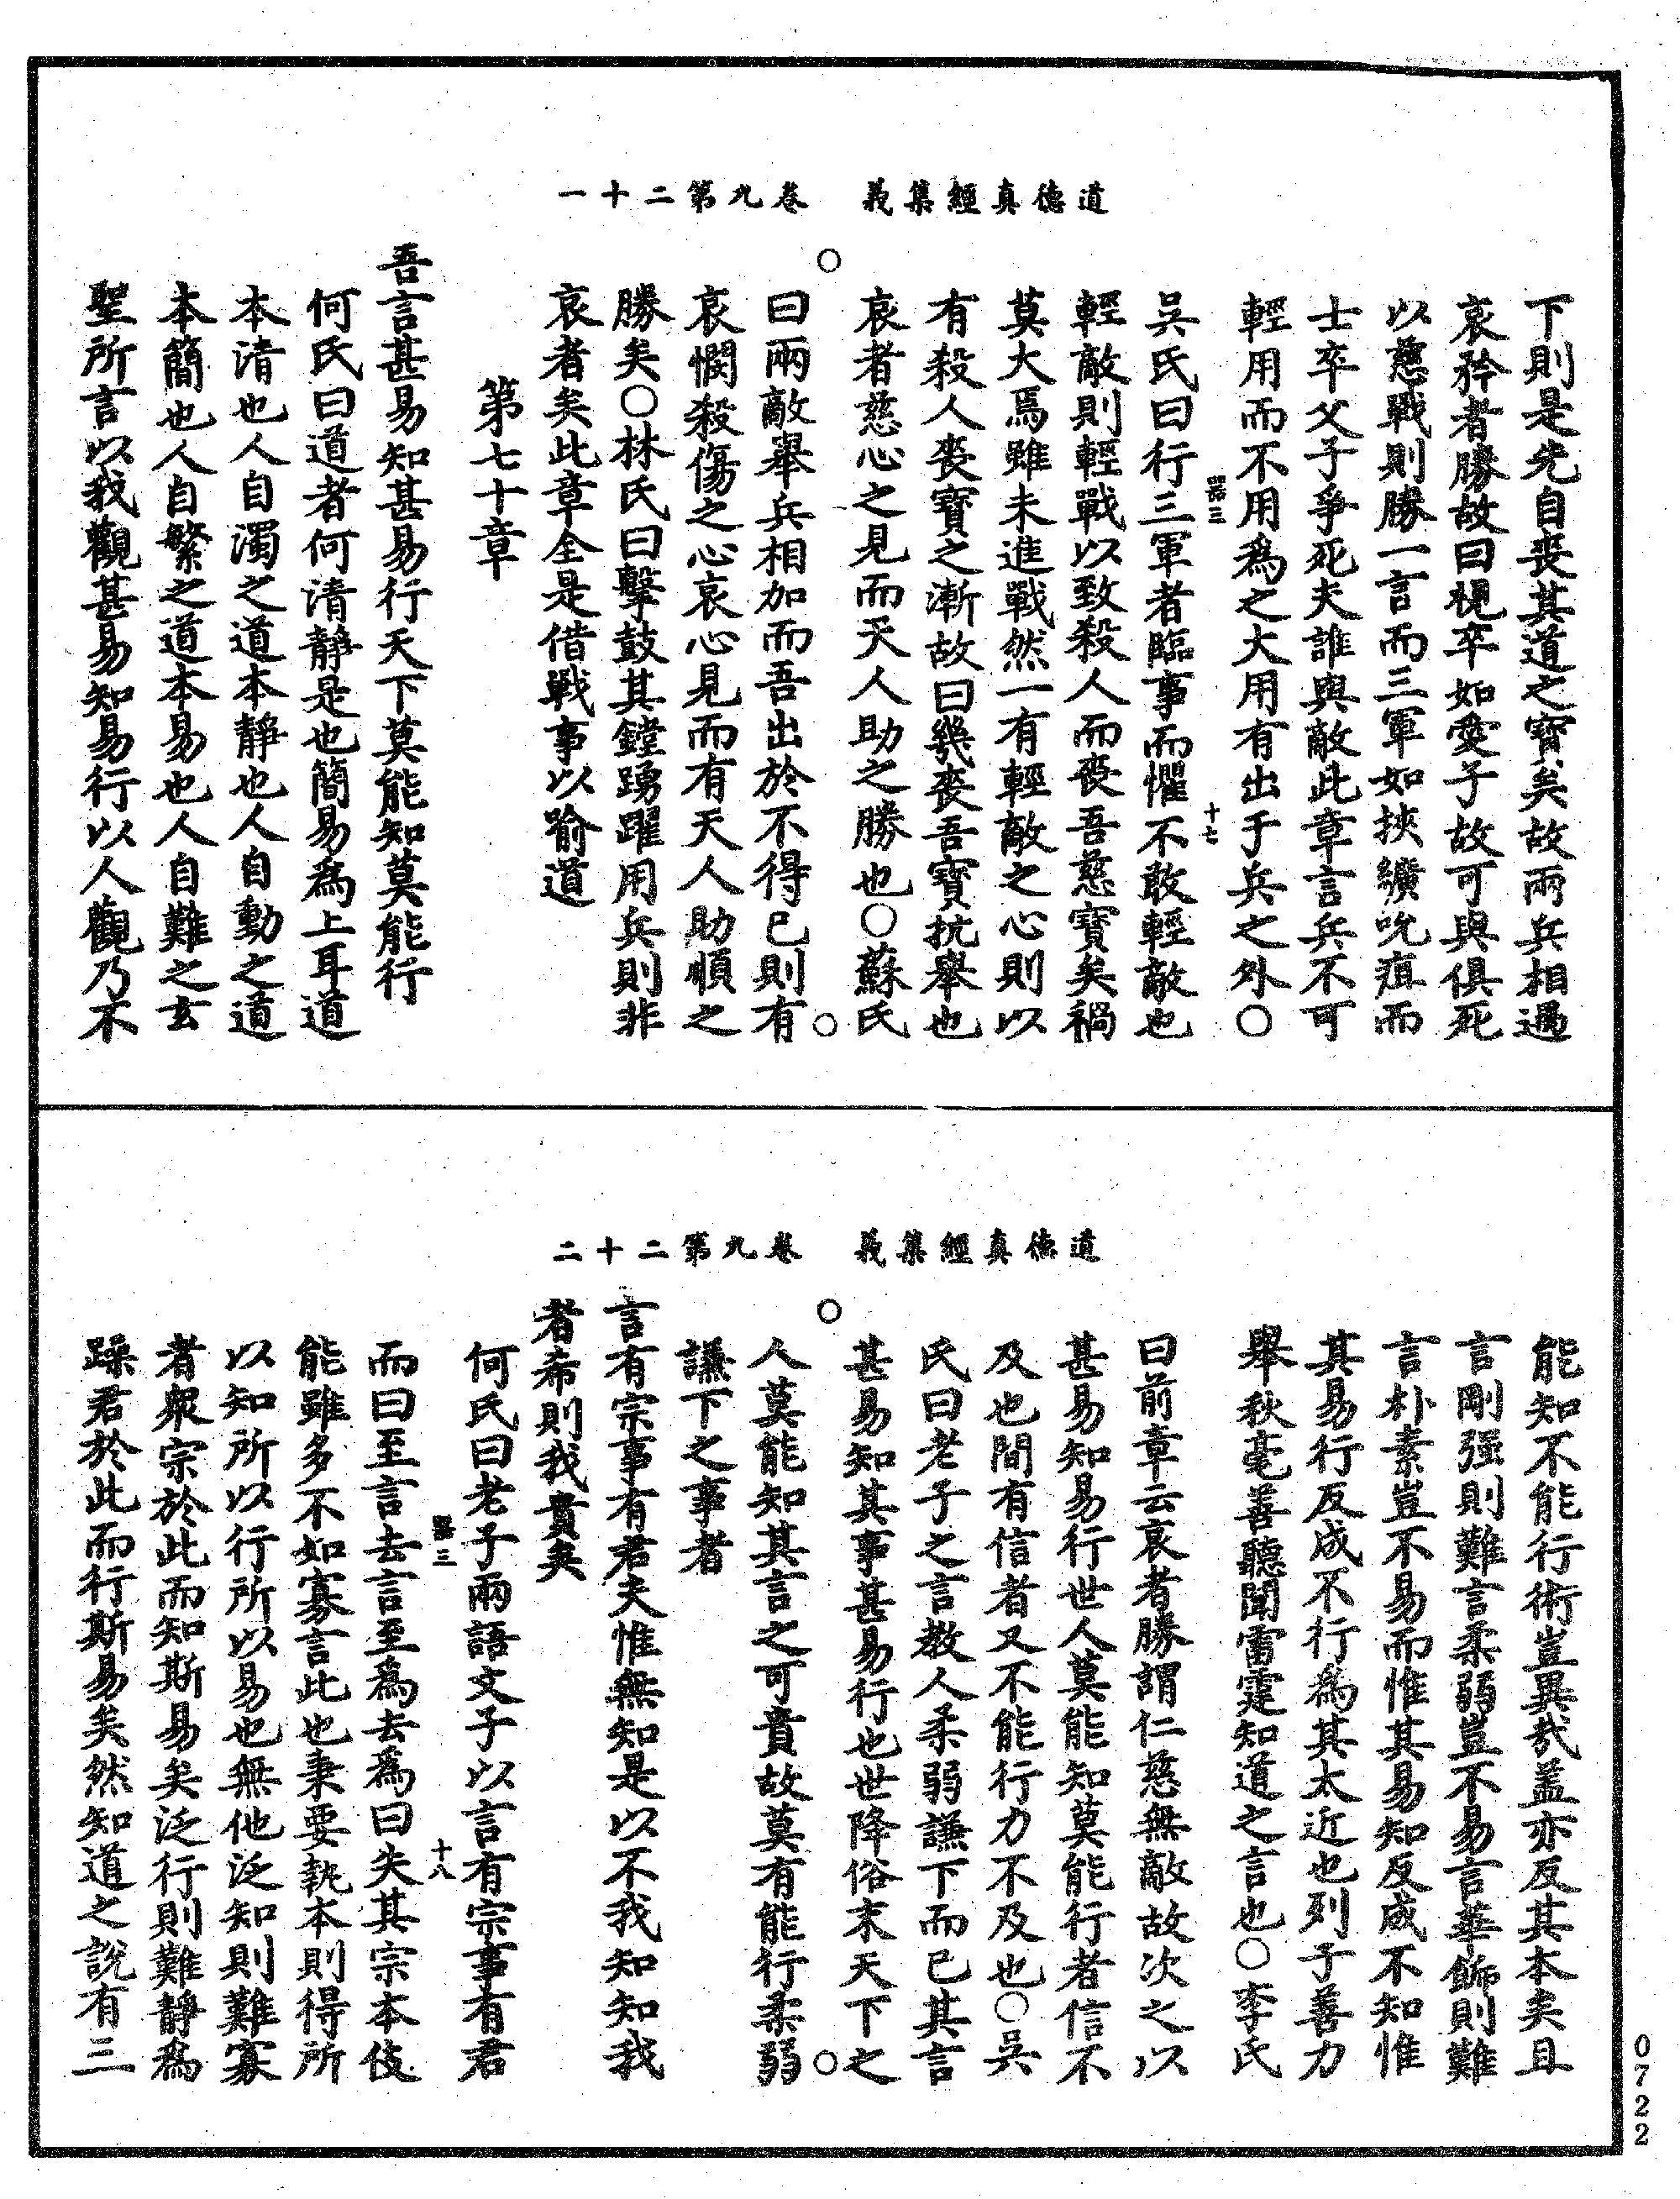 道德真經集義　卷九第二十一
下則是先自喪其道之寶矣故兩兵相遇
哀矜者勝故曰視卒如愛子故可與俱死
以慈戰則勝一言而三軍如挾纊吮疽而
士卒父子爭死夫誰與敵此章言兵不可
輕用而不用為之大用有出于兵之外〇
器三　十七
吳氏曰行三軍者臨事而懼不敢輕敵也
輕敵則輕戰以致殺人而喪吾慈寶矣禍
莫大焉雖未進戰然一有輕敵之心則以
有殺人喪寶之漸故曰幾喪吾寶抗舉也
哀者慈心之見而天人助之勝也〇蘇氏
曰兩敵舉兵相加而吾出於不得已則有
哀憫殺傷之心哀心見而有天人助順之
勝矣〇林氏曰擊鼓其鏜踴躍用兵則非
哀者矣此章全是借戰事以喻道
第七十章
吾言甚易知甚易行天下莫能知莫能行
何氏曰道者何清靜是也簡易為上耳道
本清也人自濁之道本靜也人自動之道
本簡也人自繁之道本易也人自難之玄
聖所言以我觀甚易知易行以人觀乃不
道德真經集義　卷九第二十二
能知不能行術豈異哉蓋亦反其本矣且
言剛强則難言柔弱豈不易言華飾則難
言朴素豈不易而惟其易知反成不知惟
其易行反成不行為其太近也列子善力
舉秋毫善聽聞雷霆知道之言也〇李氏
曰前章云哀者勝謂仁慈無敵故次之以
甚易知易行世人莫能知莫能行者信不
及也間有信者又不能行力不及也〇吳
氏曰老子之言教人柔弱謙下而已其言
甚易知其事甚易行也世降俗末天下之
人莫能知其言之可貴故莫有能行柔弱
謙下之事者
言有宗事有君夫惟無知是以不我知知我
者希則我貴矣
何氏曰老子兩語文子以言有宗事有君
器三　十八
而曰至言去言至為去為曰失其宗本伎
能雖多不如寡言此也秉要執本則得所
以知所以行所以易也無他泛知則難寡
者衆宗於此而知斯易矣泛行則難靜為
躁君於此而行斯易矣然知道之說有三
0722